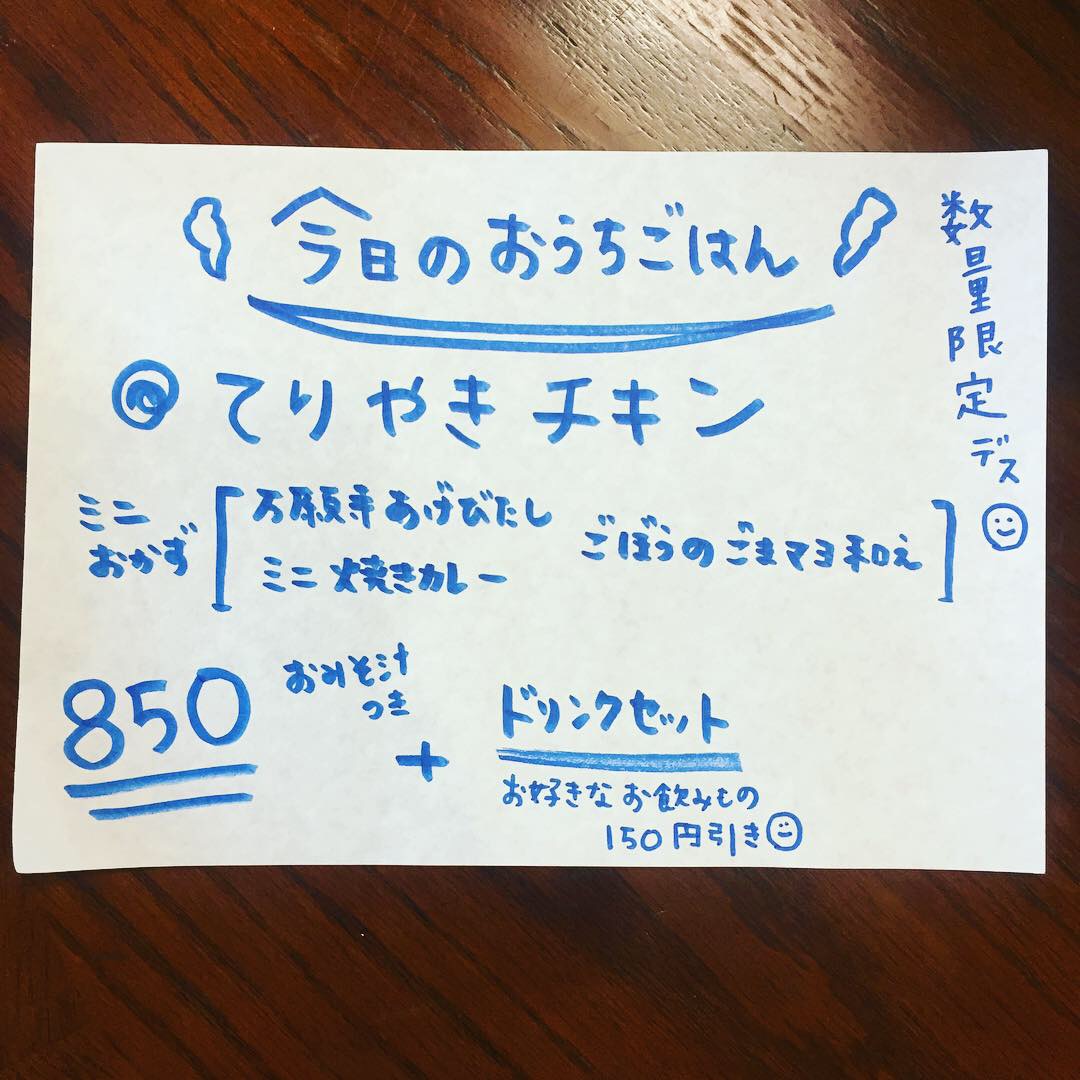 今日のおうちごはん
数量限定デス
てりやきチキン
ミニ
おかず
万願寺あげびたし
ミニ焼きカレー
ごぼうのごまマヨ和え
850
おみそ汁
つき
+
ドリンクセット
お好きなお飲みもの
150円引き